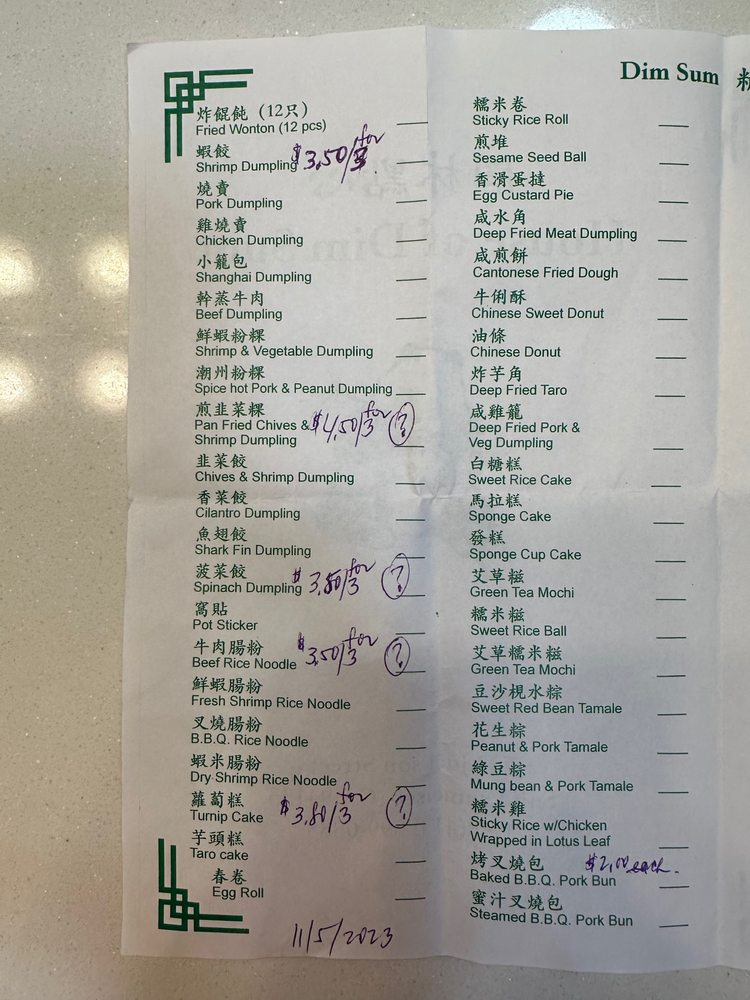 Dim Sum
炸餛飩 (12只)
Fried Wonton (12 pcs)
蝦餃
Shrimp Dumpling $3.50/for 3.
燒賣
Pork Dumpling
雞燒賣
Chicken Dumpling
小籠包
Shanghai Dumpling
幹蒸牛肉
Beef Dumpling
鮮蝦粉粿
Shrimp & Vegetable Dumpling
潮州粉粿
Spice hot Pork & Peanut Dumpling
煎韭菜粿
Pan Fried Chives & $4.50/for 3 ?
Shrimp Dumpling
韭菜餃
Chives & Shrimp Dumpling
香菜餃
Cilantro Dumpling
魚翅餃
Shark Fin Dumpling
菠菜餃
Spinach Dumpling $3.80/for 3 ?
窩貼
Pot Sticker
牛肉腸粉
Beef Rice Noodle $3.50/for 3 ?
鮮蝦腸粉
Fresh Shrimp Rice Noodle
叉燒腸粉
B.B.Q. Rice Noodle
蝦米腸粉
Dry Shrimp Rice Noodle
蘿蔔糕
Turnip Cake $3.80/for 3 ?
芋頭糕
Taro cake
春卷
Egg Roll
11/5/2023
糯米卷
Sticky Rice Roll
煎堆
Sesame Seed Ball
香滑蛋撻
Egg Custard Pie
咸水角
Deep Fried Meat Dumpling
咸煎餅
Cantonese Fried Dough
牛俐酥
Chinese Sweet Donut
油條
Chinese Donut
炸芋角
Deep Fried Taro
咸雞籠
Deep Fried Pork &
Veg Dumpling
白糖糕
Sweet Rice Cake
馬拉糕
Sponge Cake
發糕
Sponge Cup Cake
艾草糍
Green Tea Mochi
糯米糍
Sweet Rice Ball
艾草糯米糍
Green Tea Mochi
豆沙梘水粽
Sweet Red Bean Tamale
花生粽
Peanut & Pork Tamale
綠豆粽
Mung bean & Pork Tamale
糯米雞
Sticky Rice w/Chicken
Wrapped in Lotus Leaf
烤叉燒包 $2.00 each.
Baked B.B.Q. Pork Bun
蜜汁叉燒包
Steamed B.B.Q. Pork Bun